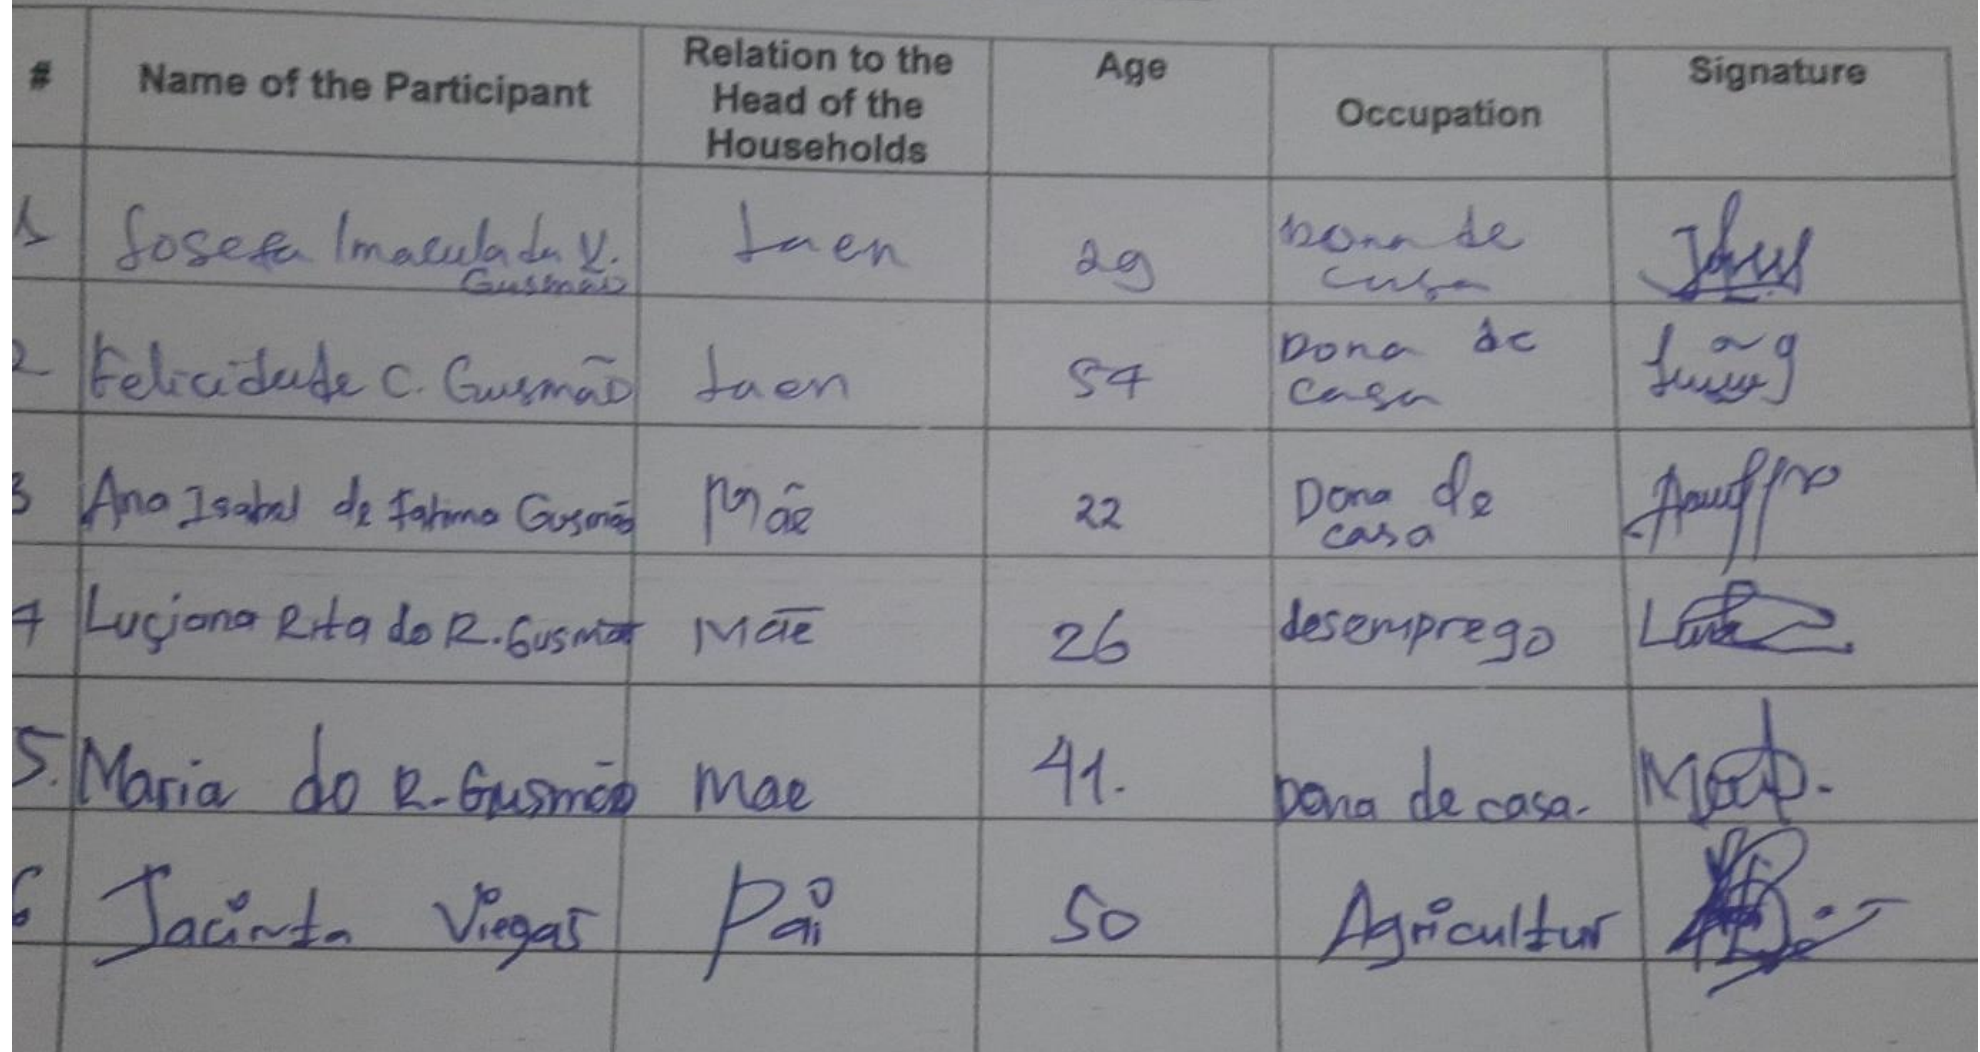 # Name of the Participant Relation to the Head of the Households Age Occupation Signature
1 Josefa Imaculada V. Gusmão 29 Dona de casa
2 Felicidade C. Gusmão 54 Dona de casa
3 Ana Isabel de Fatima Gusmão Mãe 22 Dona de casa
4 Luçiana Rita do R. Gusmão Mãe 26 desemprego
5. Maria do R. Gusmão Mae 41. Dona de casa.
6 Jacinta Viegas Pai 50 Agricultur